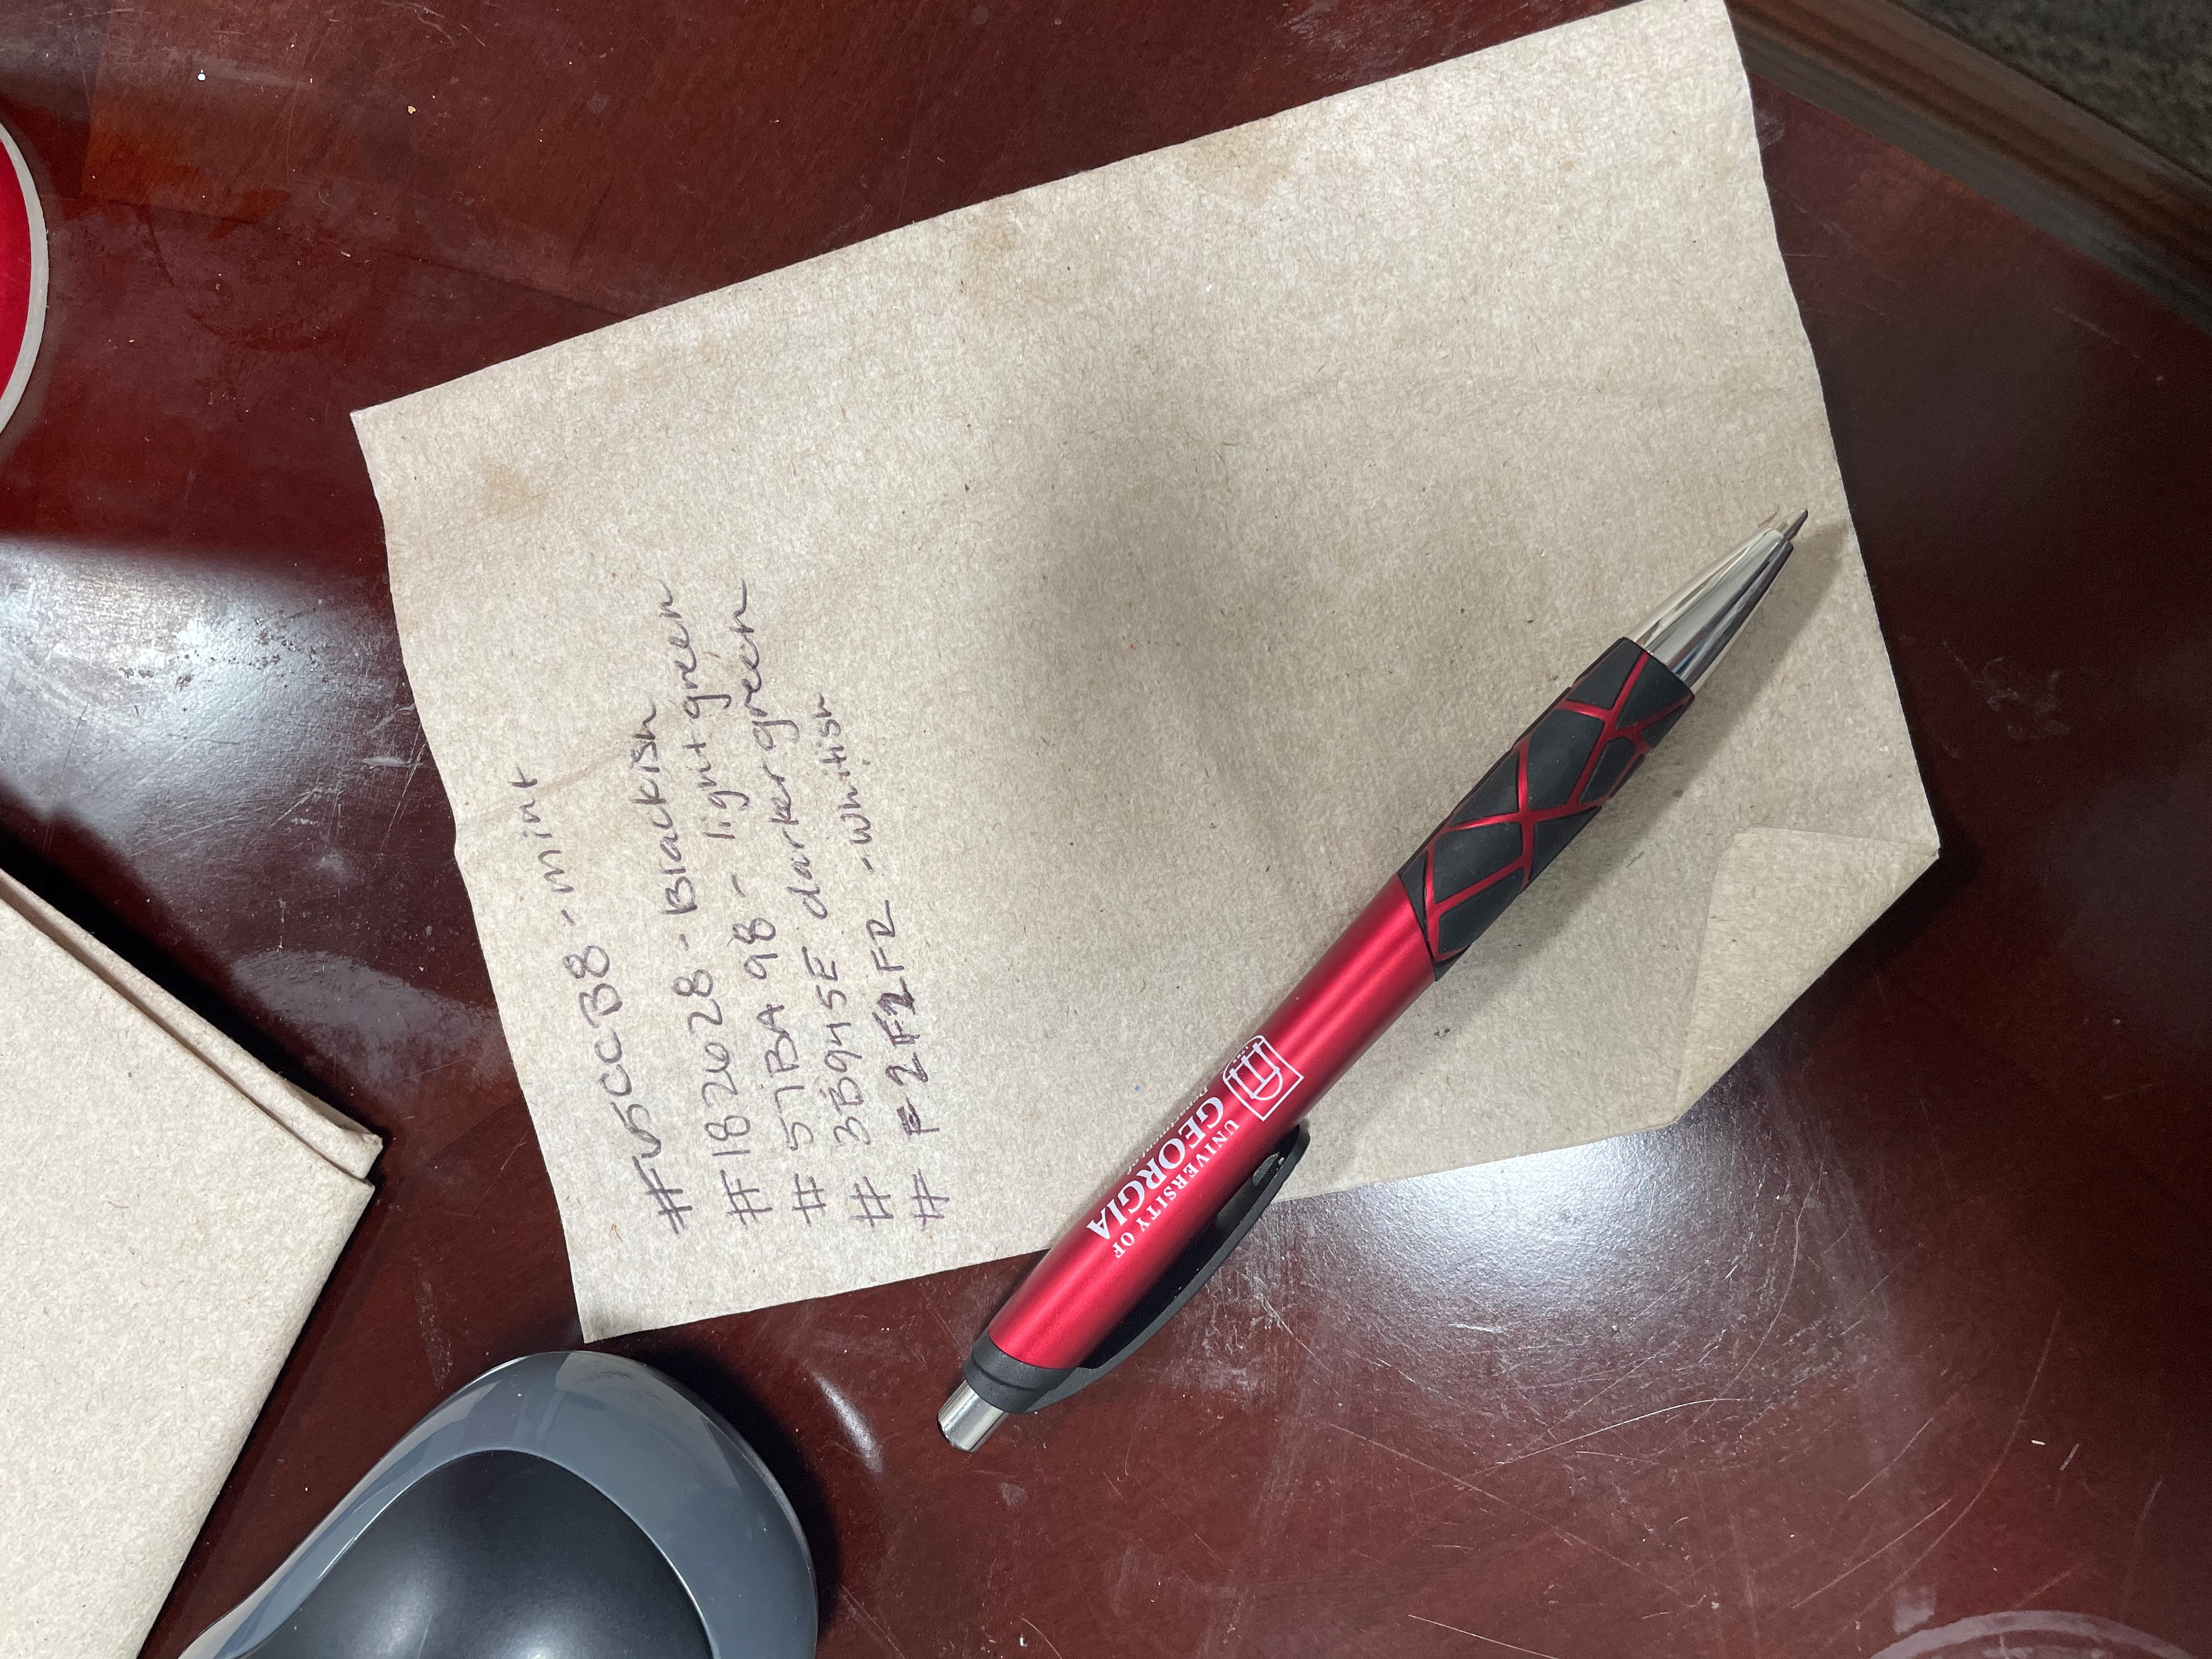 #65CCB8 - mint
#182628 - Blackish
#57BA98 - light green
#3B945E darker green
#F2F2F2 - whitish
UNIVERSITY OF
GEORGIA